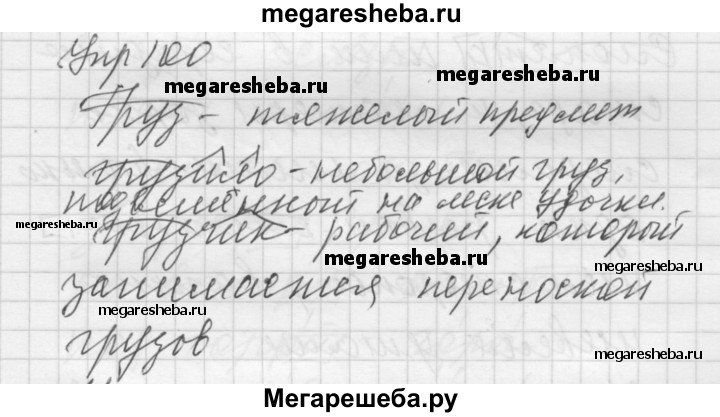 megaresheba.ru
Упр 100
megaresheba.ru
Груз - тяжелый предмет
грузило - небольшой груз,
подвешенный на леске удочки.
megaresheba.ru
грузчик - рабочий, который
megaresheba.ru
megaresheba.ru
занимается переноской
megaresheba.ru
грузов
megaresheba.ru
Мегарешеба.ру